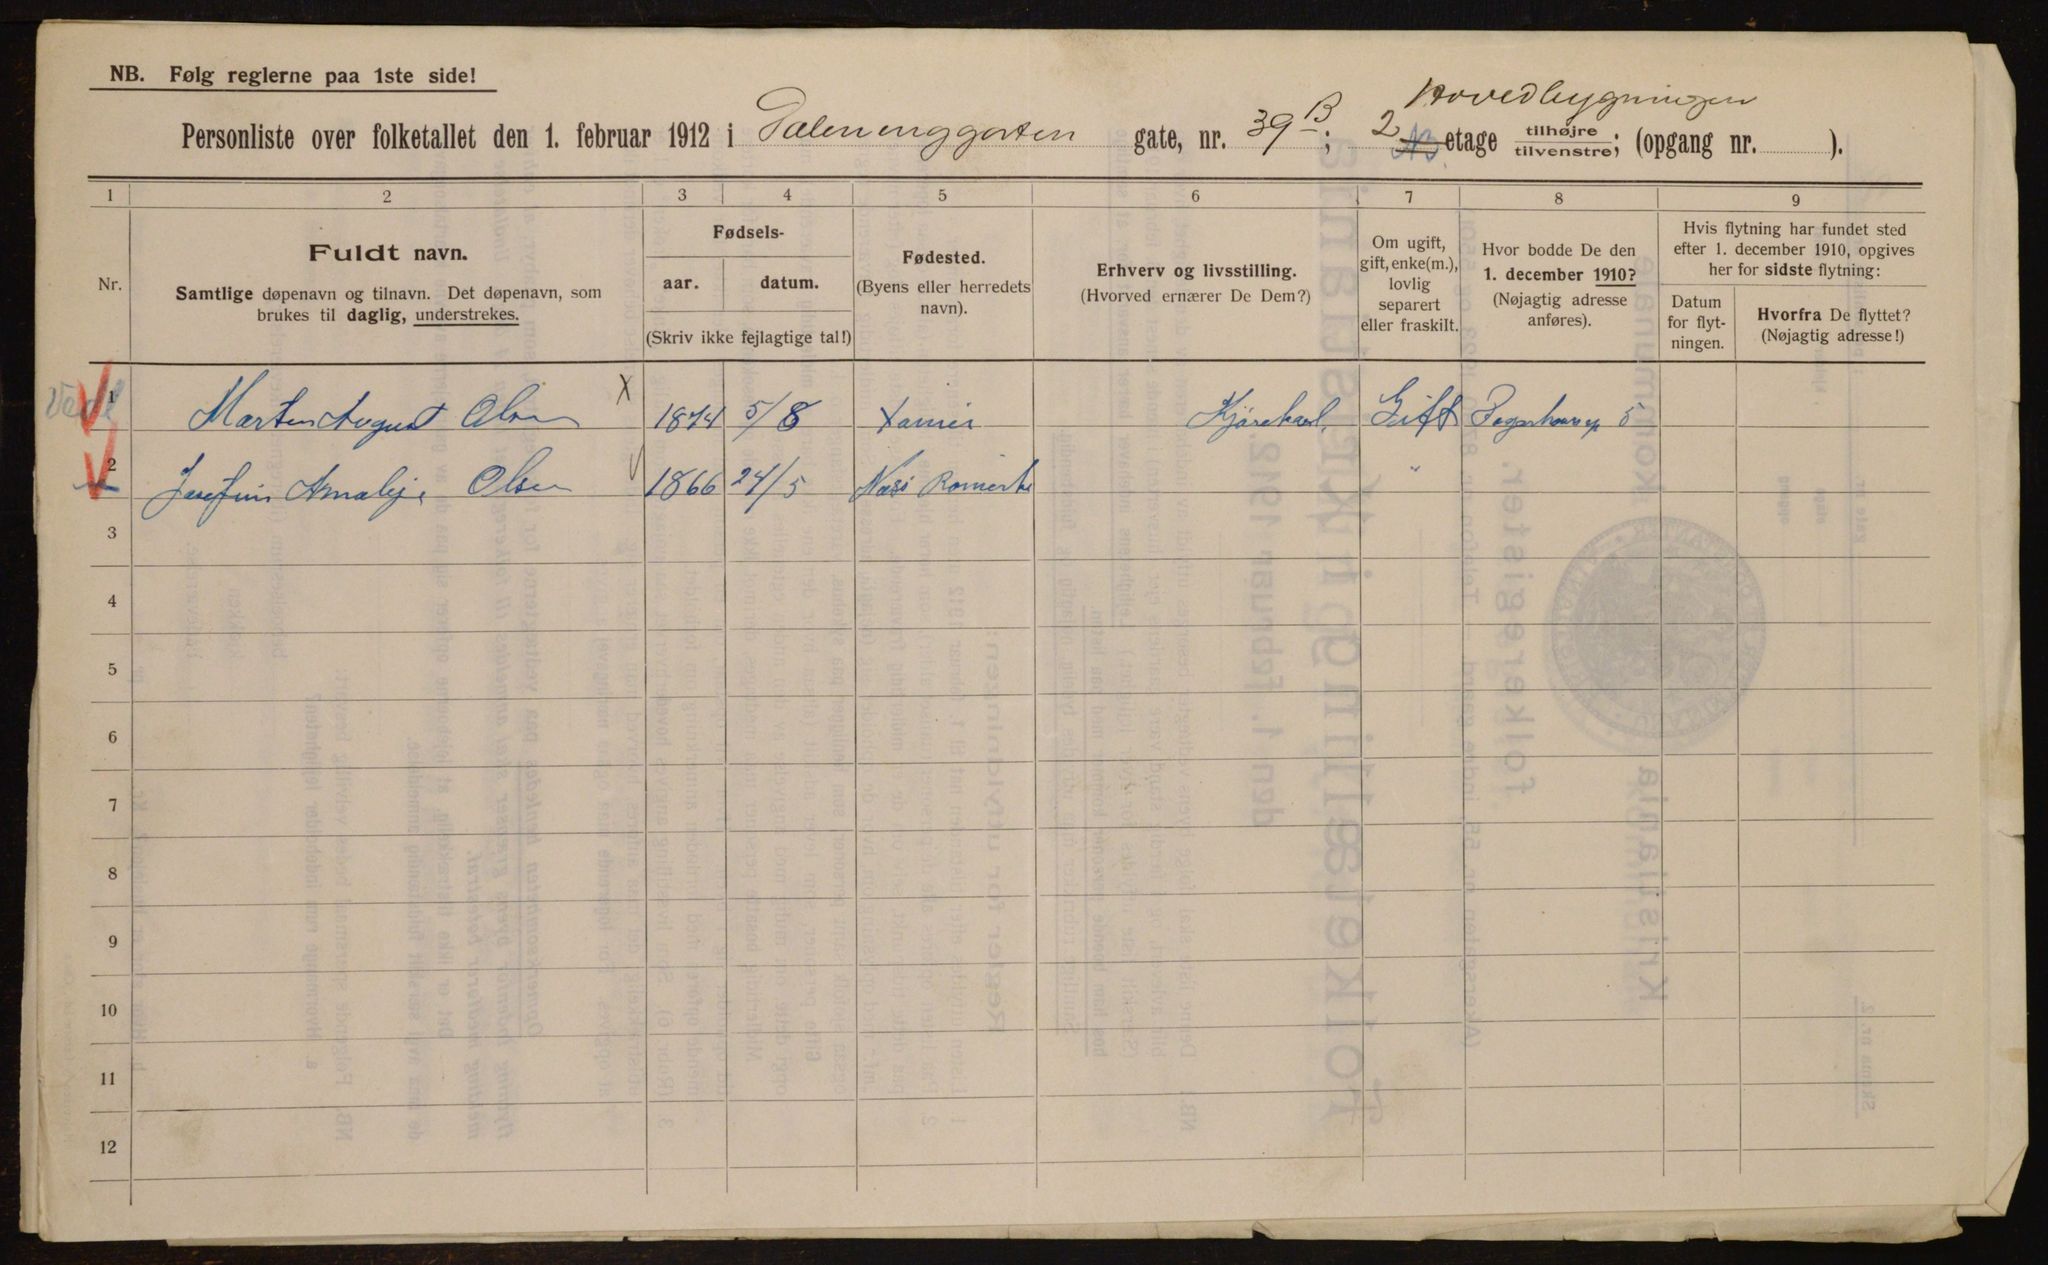 NB. Følg reglerne paa 1ste side!
Hovedbygningen
Personliste over folketallet den 1. februar 1912 i Dælenenggarten gate, nr. 39 B; 2 etage tilhøjre/tilvenstre; (opgang nr. ).
1 2 3 4 5 6 7 8 9
Nr.
Fuldt navn.
Samtlige døpenavn og tilnavn. Det døpenavn, som
brukes til daglig, understrekes.
Fødsels-
aar. datum.
(Skriv ikke fejlagtige tal!)
Fødested.
(Byens eller herredets
navn).
Erhverv og livsstilling.
(Hvorved ernærer De Dem?)
Om ugift,
gift, enke(m.),
lovlig
separert
eller fraskilt.
Hvor bodde De den
1. december 1910?
(Nøjagtig adresse
anføres).
Hvis flytning har fundet sted
efter 1. december 1910, opgives
her for sidste flytning:
Datum
for flyt-
ningen.
Hvorfra De flyttet?
(Nøjagtig adresse!)
1 Marten August Olsen X 1874 5/8 Kjørekarl. Gift 5
2 Josefine Amalije Olsen 1866 24/5 Næs Romerike "
3
4
5
6
7
8
9
10
11
12